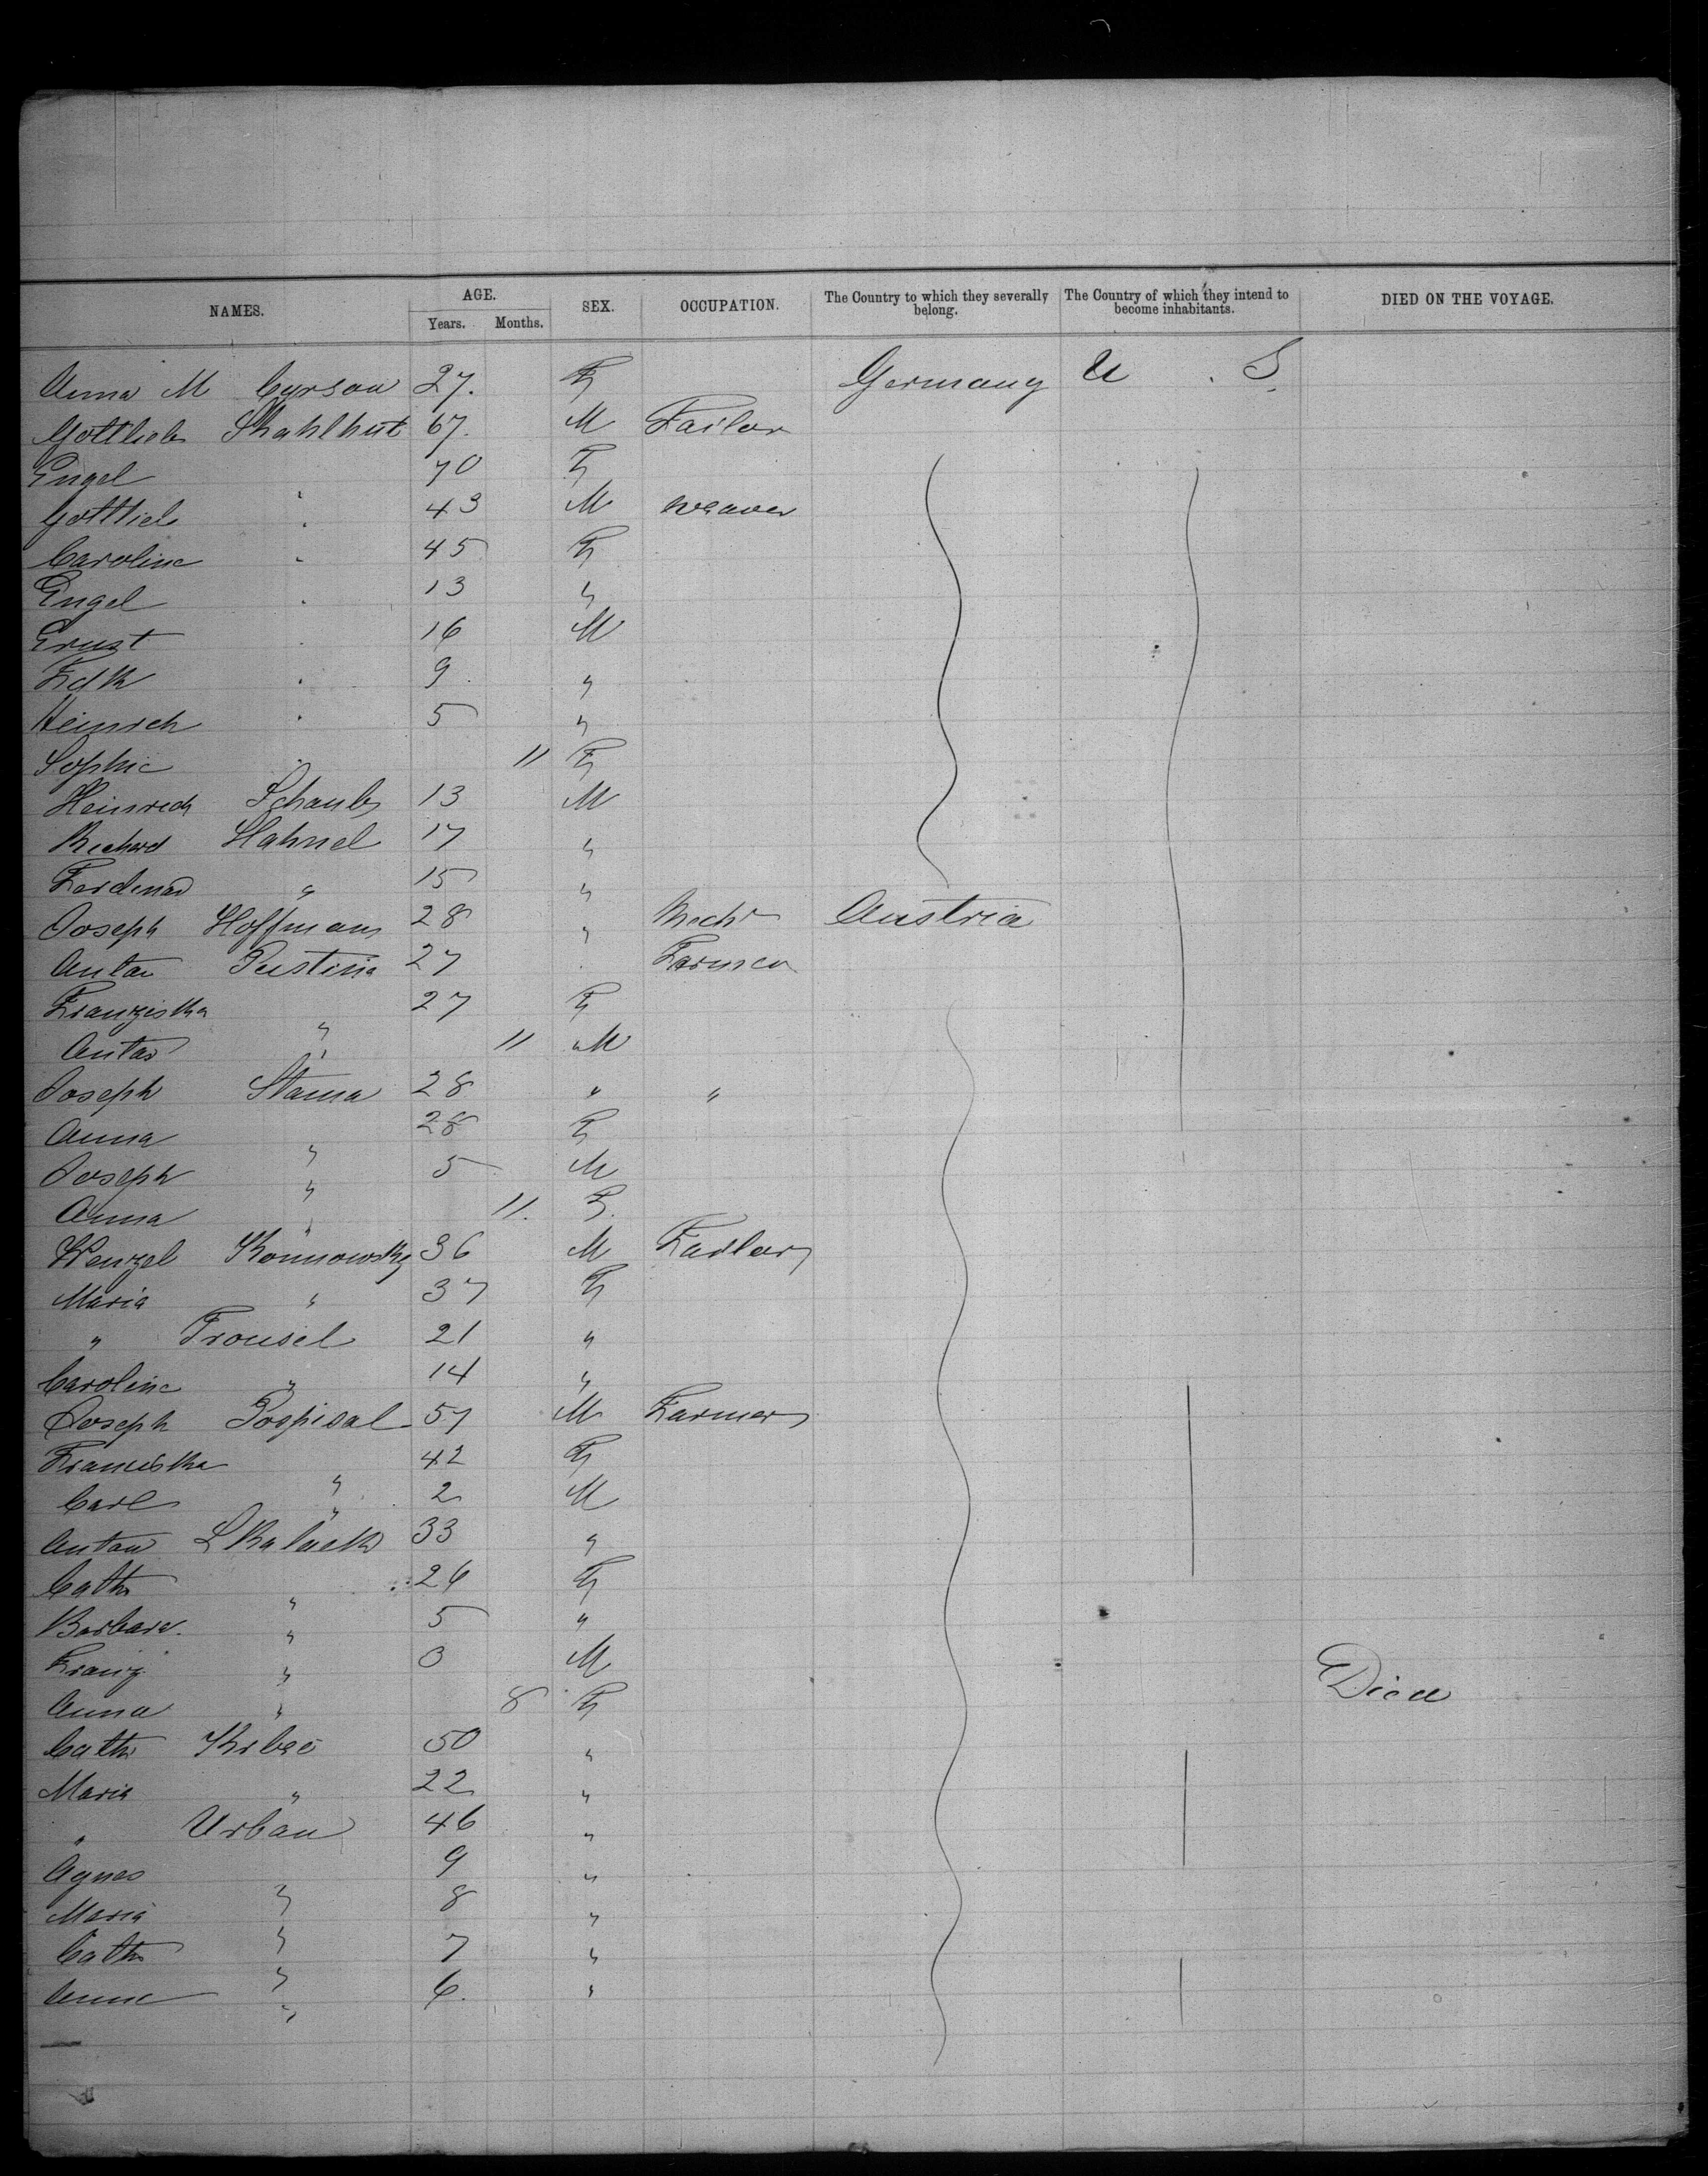 NAMES. AGE. Years. Months. SEX. OCCUPATION. The Country to which they severally belong. The Country of which they intend to become inhabitants. DIED ON THE VOYAGE.
Anna M Cyrson 27. F Germany U . S
Gottlieb Stahlhut 67. M Tailor
Engel " 70 F
Gottlieb " 43 M weaver
Caroline " 45 F
Engel " 13 "
Ernst " 16 M
Fdk " 9 "
Heinrch " 5 "
Sophie " 11 F
Heinrich Schaub 13 M
Richard Hahnel 17 "
Ferdinad " 15 "
Joseph Hoffmann 28 " Mechc Austria
Anton Pustina 27 " Farmer
Franziska " 27 F
Anton " 11 M
Joseph Stama 28 " "
Anna " 28 F
Joseph " 5 M
Anna " 11. F.
Wenzel Konnowsky 36 M Tailor
Maria " 37 F
" Trousil 21 "
Caroline " 14 "
Joseph Pospisal 57 M Farmer
Franciska " 42 F
Carl " 2 M
Anton 33 "
Cath " 26 F
Barbara " 5 "
Franz " 0 M
Anna " 8 F Died
Cath 50 "
Maria " 22 "
" Urban 46 "
Agnes " 9 "
Maria " 8 "
Cath " 7 "
Anna " 6. "